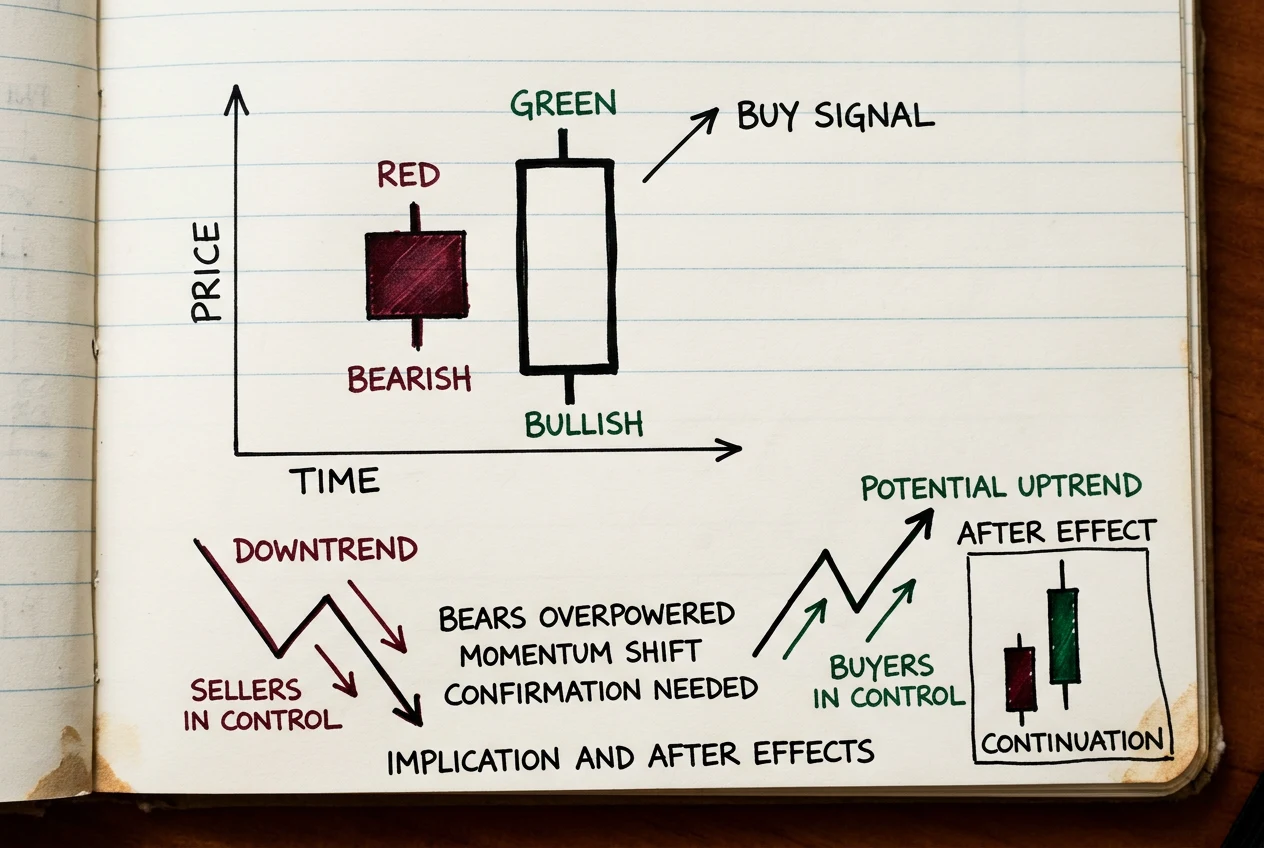 GREEN
BUY SIGNAL
RED
PRICE
BEARISH
BULLISH
TIME
POTENTIAL UPTREND
AFTER EFFECT
DOWNTREND
BEARS OVERPOWERED
MOMENTUM SHIFT
CONFIRMATION NEEDED
SELLERS
IN CONTROL
BUYERS
IN CONTROL
CONTINUATION
IMPLICATION AND AFTER EFFECTS